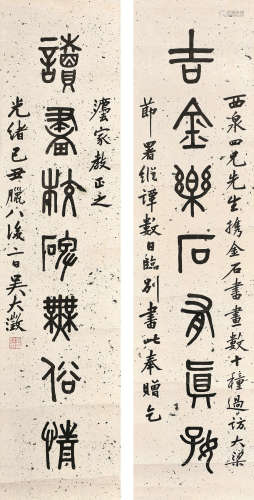 吉金樂石有真好
讀畫校碑無俗情
西泉四兄先生攜金石書畫數十種過訪大梁
節署縱譚數日臨別書此奉贈乞
灋家教正之
光緒己丑臘八後二日吳大澂